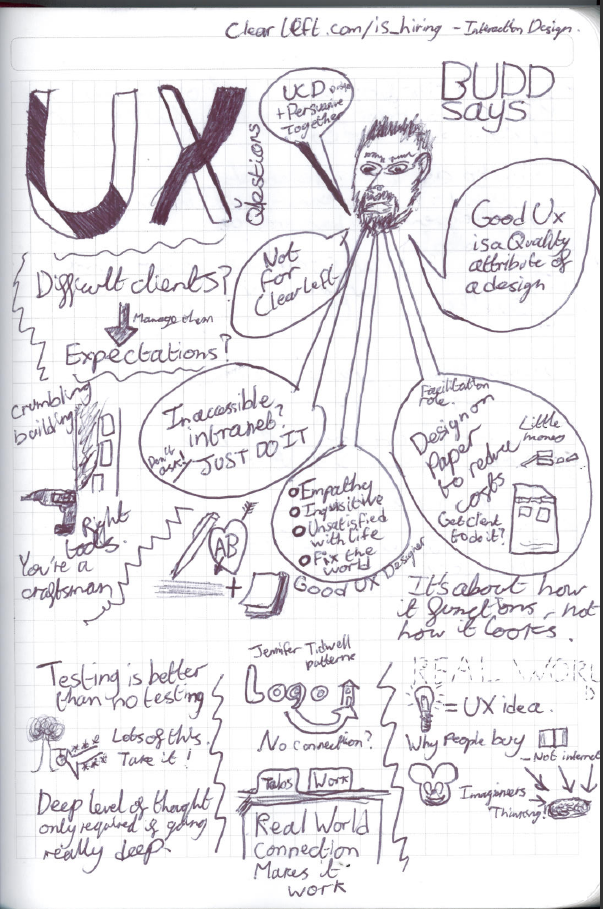 Clearleft.com/is_hiring - Interaction Design.
UX
Questions
UCD
+ Persuasive
Together
BUDD
says
Good Ux
is a Quality
attribute of
a design
Not
for
Clearleft
Difficult clients?
Manage them
Expectations?
Crumbling
building
Right
tools.
You're a
craftsman
Inaccessible
intranet?
Don't
ask!
JUST DO IT
Empathy
Inquisitive
Unsatisfied
with life
Fix the
world
Good UX Designer
AB
+
Facilitation
role.
Design on
Paper
to reduce
costs
Little
money
Get client
to do it?
It's about how
it functions, not
how it looks.
Testing is better
than no testing
Lots of this.
Take it!
Deep level of thought
only required if going
really deep.
Jennifer Tidwell
patterns
Logo
No connection?
Tabs Work
Real World
Connection
Makes it
work
REAL WORLD
= UX idea.
Why People buy
- Not internet
Imagineers
Thinking!